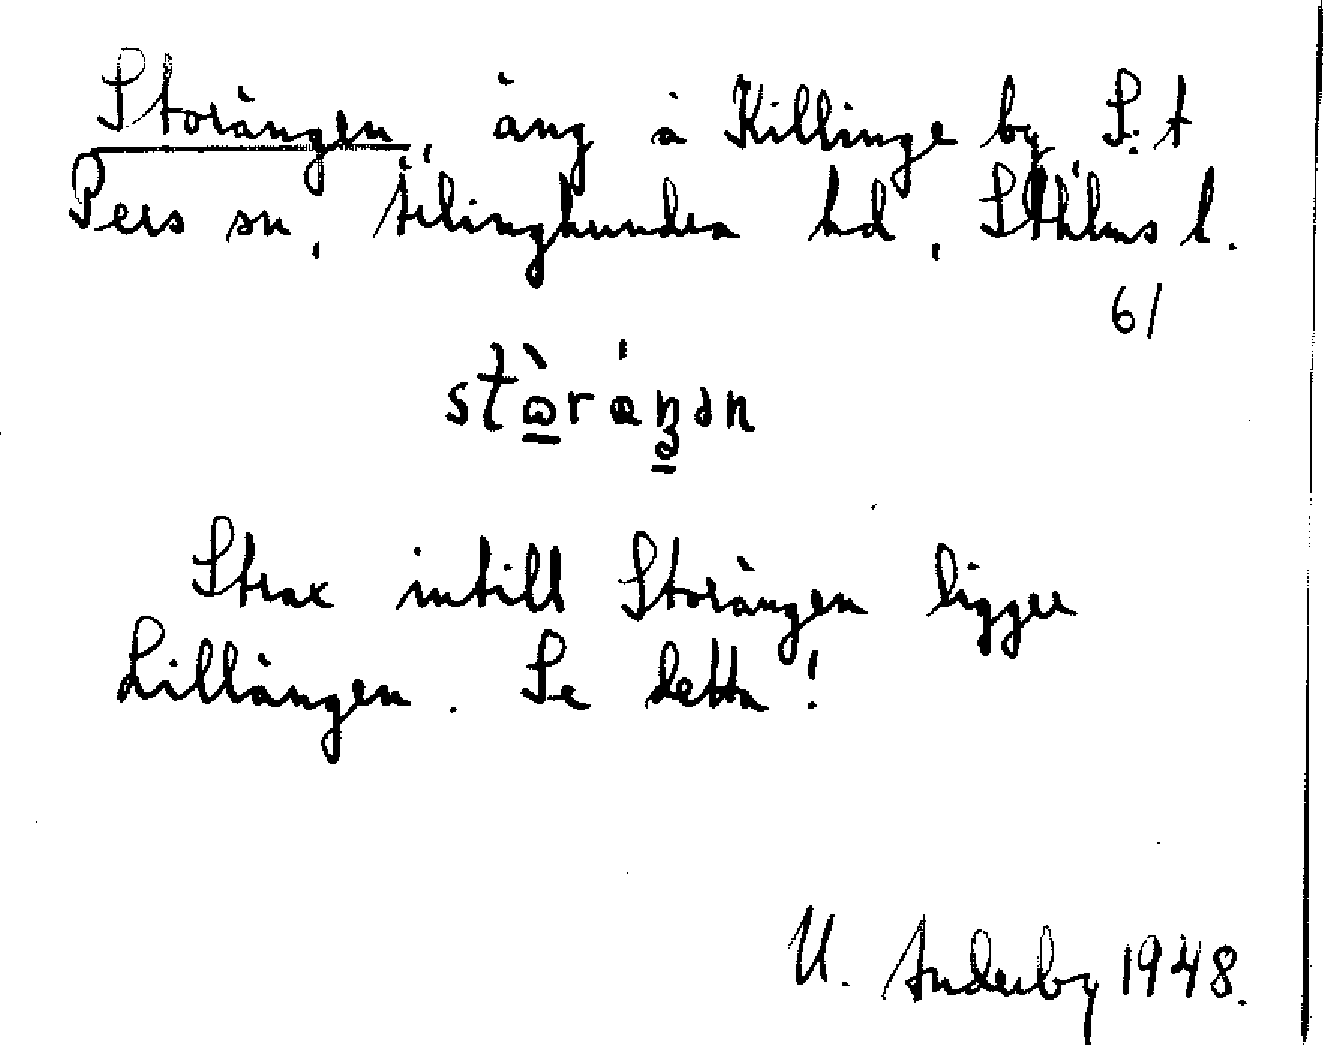 Storängen, äng å Killinge by, S:t
Pers sn, Ärlinghundra hd, Sthlms l.
61
stὼ̲ráŋən
Strax intill Storängen ligger
Lillängen. Se detta!
U. Anderby 1948.